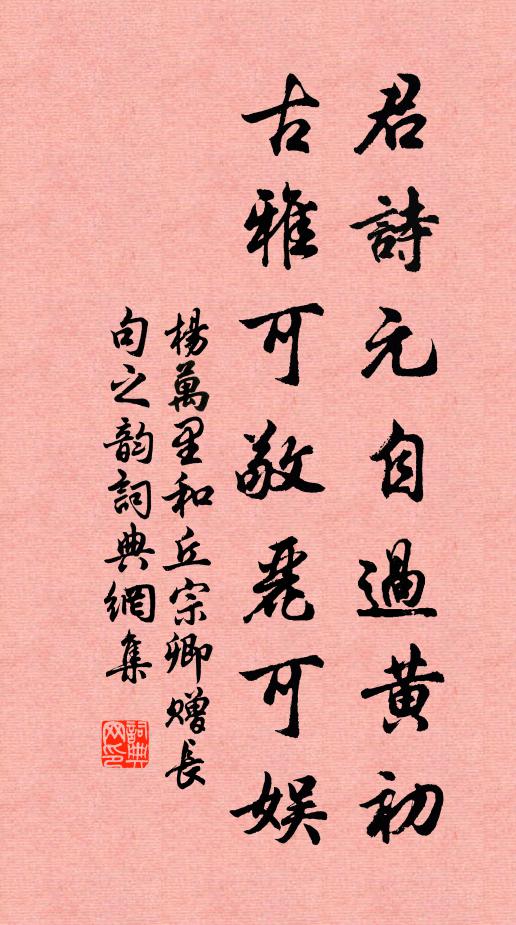 君詩元自過黄初
古雅可敬麗可娱
楊萬里和丘宗卿赠長
句之韵詞典網集
詞典
网印